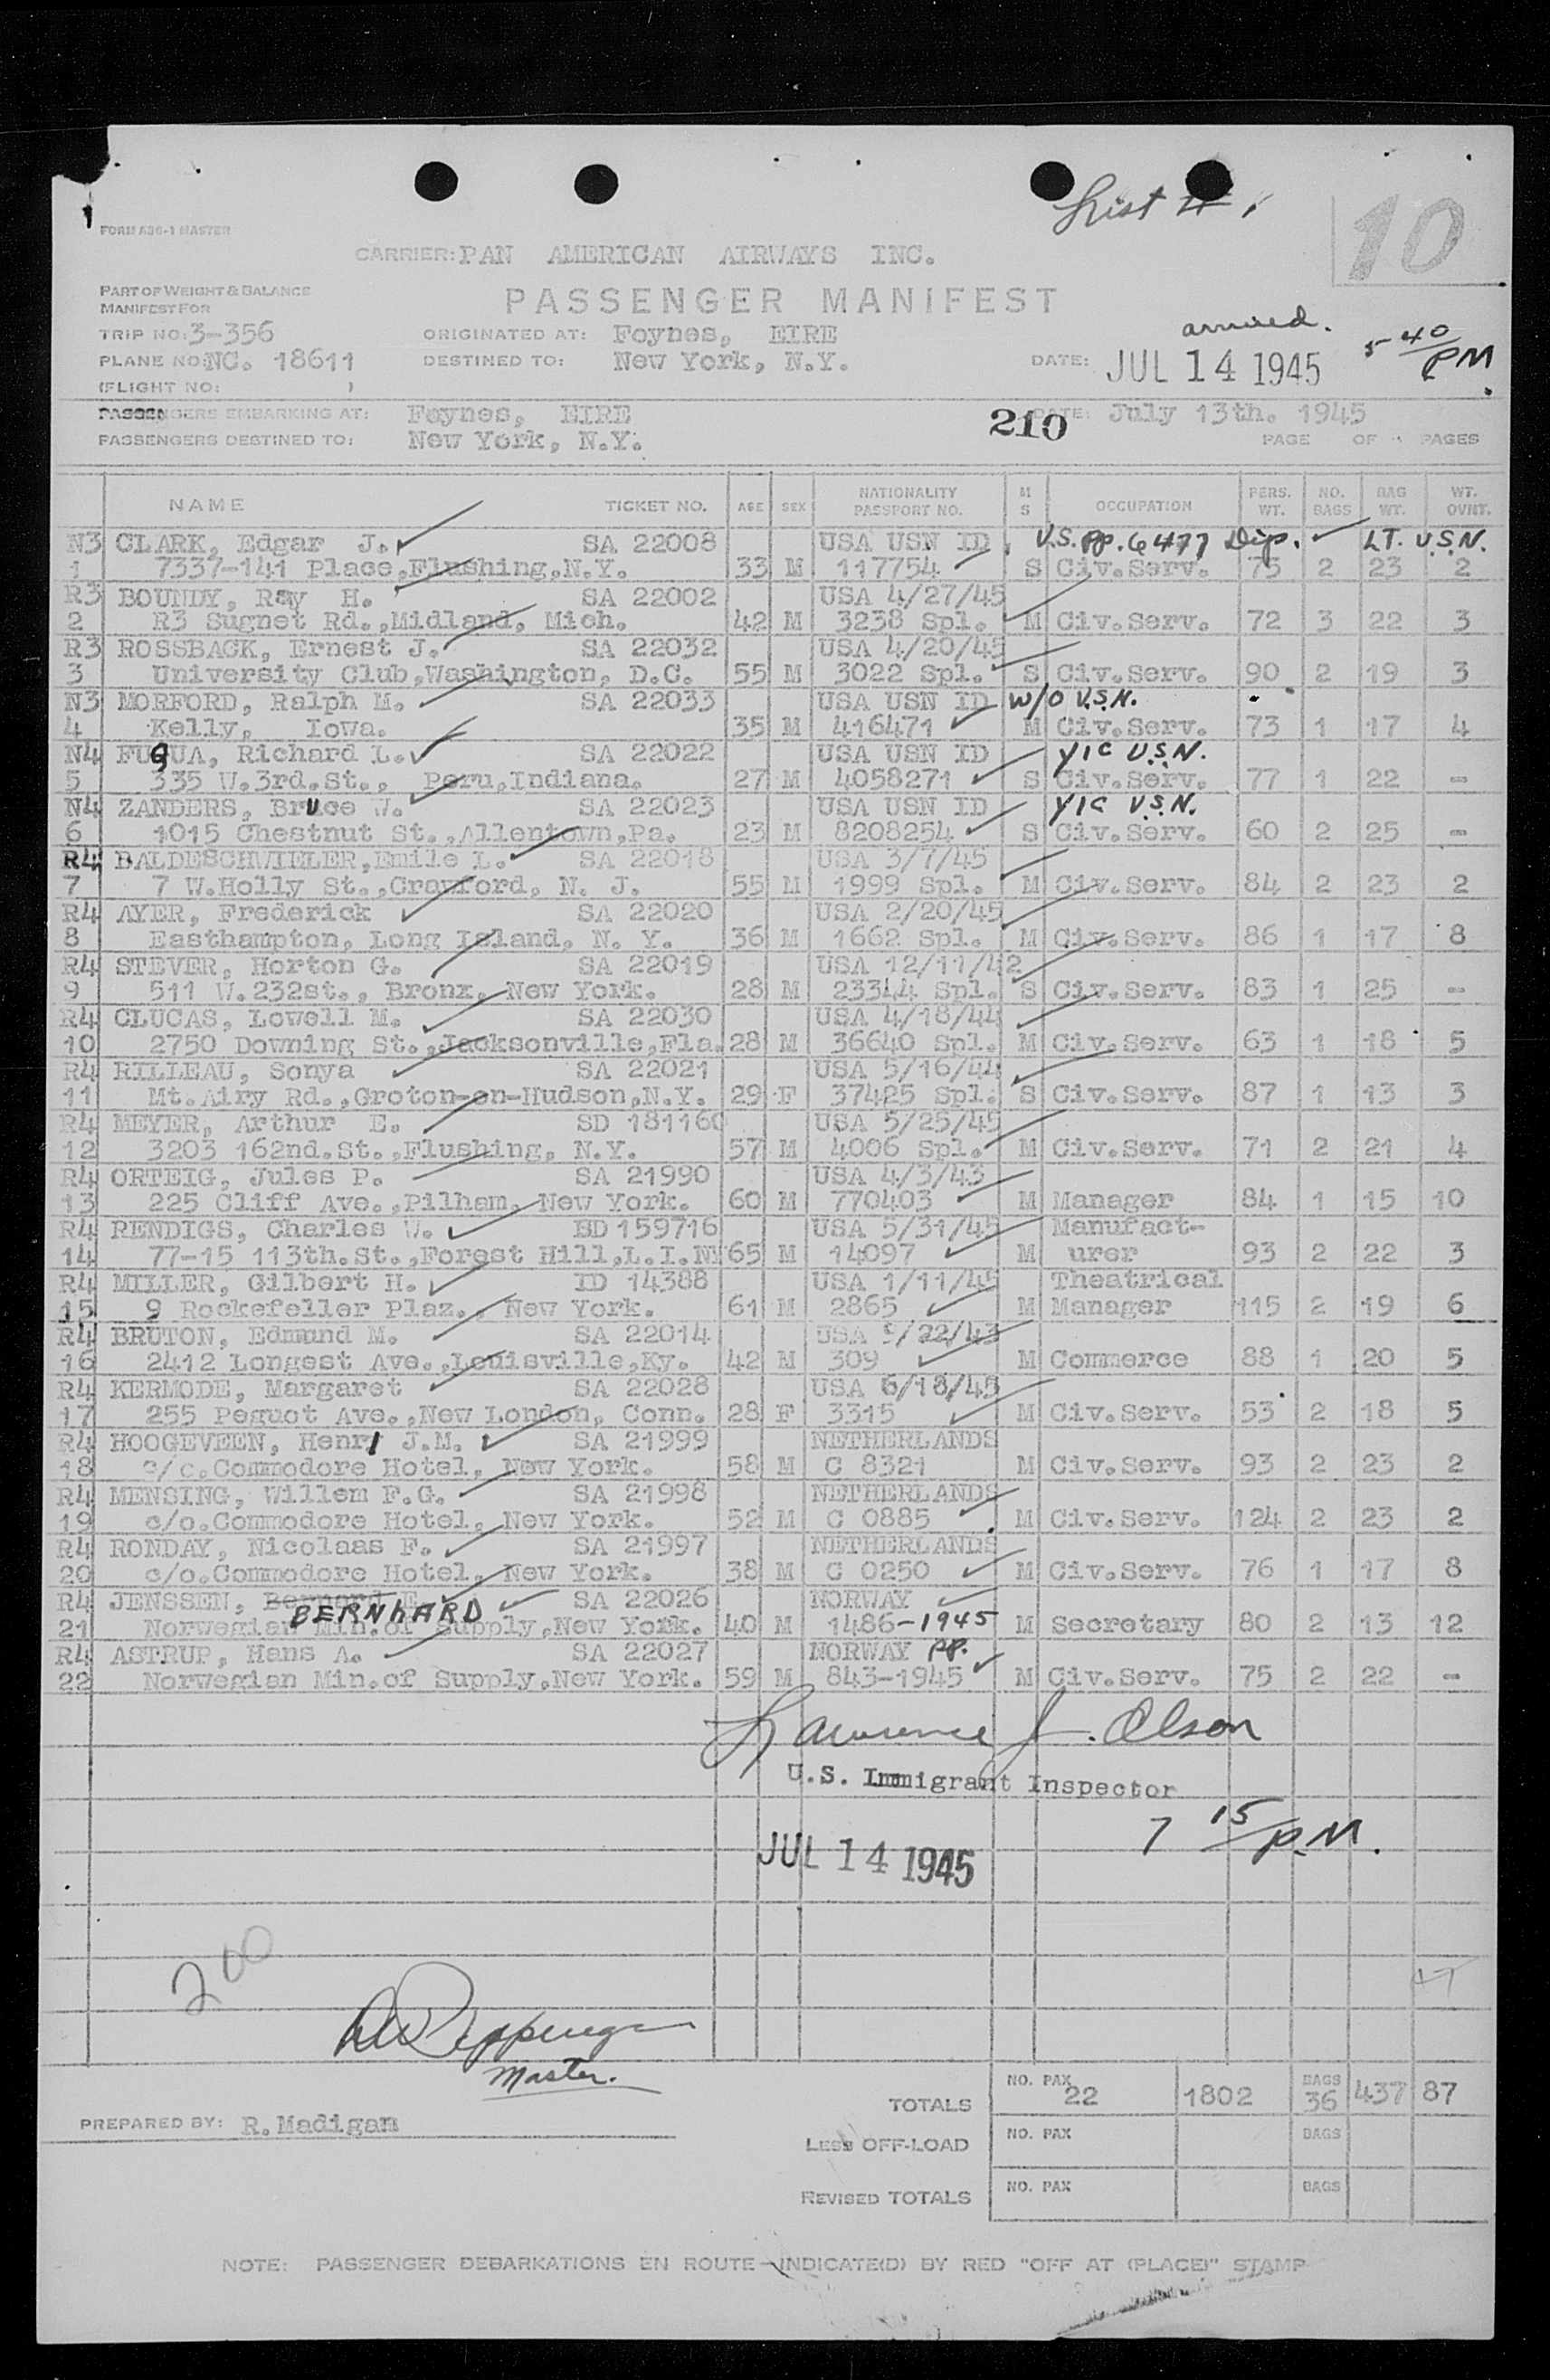 List # 1
10
FORM A36-1 MASTER
CARRIER: PAN AMERICAN AIRWAYS INC.
PART OF WEIGHT & BALANCE
MANIFEST FOR
PASSENGER MANIFEST
TRIP NO: 3-356 ORIGINATED AT: Foynes, EIRE arrived. 5 40/PM
PLANE NO: NC. 18611 DESTINED TO: New York, N.Y. DATE: JUL 14 1945
(FLIGHT NO: )
PASSENGERS EMBARKING AT: Foynes, EIRE 210 DATE: July 13th. 1945
PASSENGERS DESTINED TO: New York, N.Y. PAGE OF PAGES
NAME TICKET NO. AGE SEX NATIONALITY PASSPORT NO. M S OCCUPATION PERS. WT. NO. BAGS BAG WT. WT. OVNT.
N3 CLARK, Edgar J. SA 22008 USA USN ID V.S. pp. 6477 Dip. LT. U.S.N.
1 7337-141 Place,Flushing,N.Y. 33 M 117754 S Civ.Serv. 75 2 23 2
R3 BOUNDY, Ray H. SA 22002 USA 4/27/45
2 R3 Sugnet Rd.,Midland, Mich. 42 M 3238 Spl. M Civ.Serv. 72 3 22 3
R3 ROSSBACK, Ernest J. SA 22032 USA 4/20/45
3 University Club,Washington, D.C. 55 M 3022 Spl. S Civ.Serv. 90 2 19 3
N3 MORFORD, Ralph M. SA 22033 USA USN ID W/O U.S.N.
4 Kelly, Iowa. 35 M 416471 M Civ.Serv. 73 1 17 4
N4 FUQUA, Richard L. SA 22022 USA USN ID Y1C U.S.N.
5 335 W.3rd.St., Peru,Indiana. 27 M 4058271 S Civ.Serv. 77 1 22 -
N4 ZANDERS, Bruce W. SA 22023 USA USN ID Y1C U.S.N.
6 1015 Chestnut St.,Allentown,Pa. 23 M 8208254 S Civ.Serv. 60 2 25 -
R4 BALDESCHWIELER,Emile L. SA 22018 USA 3/7/45
7 7 W.Holly St.,Cranford, N. J. 55 M 1999 Spl. M Civ.Serv. 84 2 23 2
R4 AYER, Frederick SA 22020 USA 2/20/45
8 Easthampton, Long Island, N. Y. 36 M 1662 Spl. M Civ.Serv. 86 1 17 8
R4 STEVER, Horton G. SA 22019 USA 12/11/42
9 511 W.232st., Bronx, New York. 28 M 23344 Spl. S Civ.Serv. 83 1 25 -
R4 CLUCAS, Lowell M. SA 22030 USA 4/18/44
10 2750 Downing St.,Jacksonville,Fla. 28 M 36640 Spl. M Civ.Serv. 63 1 18 5
R4 RILLEAU, Sonya SA 22021 USA 5/16/44
11 Mt.Airy Rd.,Groton-on-Hudson,N.Y. 29 F 37425 Spl. S Civ.Serv. 87 1 13 3
R4 MEYER, Arthur E. SD 181160 USA 5/25/45
12 3203 162nd.St.,Flushing, N.Y. 57 M 4006 Spl. M Civ.Serv. 71 2 21 4
R4 ORTEIG, Jules P. SA 21990 USA 4/3/43
13 225 Cliff Ave.,Pilham, New York. 60 M 770403 M Manager 84 1 15 10
R4 RENDIGS, Charles W. BD 159716 USA 5/31/45 Manufact-
14 77-15 113th.St.,Forest Hill,L.I.NY 65 M 14097 M urer 93 2 22 3
R4 MILLER, Gilbert H. ID 14388 USA 1/11/45 Theatrical
15 9 Rockefeller Plaz., New York. 61 M 2865 M Manager 115 2 19 6
R4 BRUTON, Edmund M. SA 22014 USA 9/22/43
16 2412 Longest Ave.,Louisville,Ky. 42 M 309 M Commerce 88 1 20 5
R4 KERMODE, Margaret SA 22028 USA 6/18/45
17 255 Pequot Ave.,New London, Conn. 28 F 3315 M Civ.Serv. 53 2 18 5
R4 HOOGEVEEN, Henri J.M. SA 21999 NETHERLANDS
18 c/o.Commodore Hotel, New York. 58 M C 8321 M Civ.Serv. 93 2 23 2
R4 MENSING, Willem F.G. SA 21998 NETHERLANDS
19 c/o.Commodore Hotel, New York. 52 M C 0885 M Civ.Serv. 124 2 23 2
R4 RONDAY, Nicolaas F. SA 21997 NETHERLANDS
20 c/o.Commodore Hotel, New York. 38 M C 0250 M Civ.Serv. 76 1 17 8
R4 JENSSEN, Bernard E. SA 22026 NORWAY
BERNhARD
21 Norwegian Min.of Supply,New York. 40 M 1486-1945 M Secretary 80 2 13 12
R4 ASTRUP, Hans A. SA 22027 NORWAY pp.
22 Norwegian Min.of Supply,New York. 59 M 843-1945 M Civ.Serv. 75 2 22 -
Lawrence J. Olson
U.S. Immigrant Inspector
7 15/P.M.
JUL 14 1945
200
Master.
TOTALS NO. PAX 22 1802 BAGS 36 437 87
PREPARED BY: R.Madigan
LESS OFF-LOAD NO. PAX BAGS
REVISED TOTALS NO. PAX BAGS
NOTE: PASSENGER DEBARKATIONS EN ROUTE - INDICATE(D) BY RED "OFF AT (PLACE)" STAMP